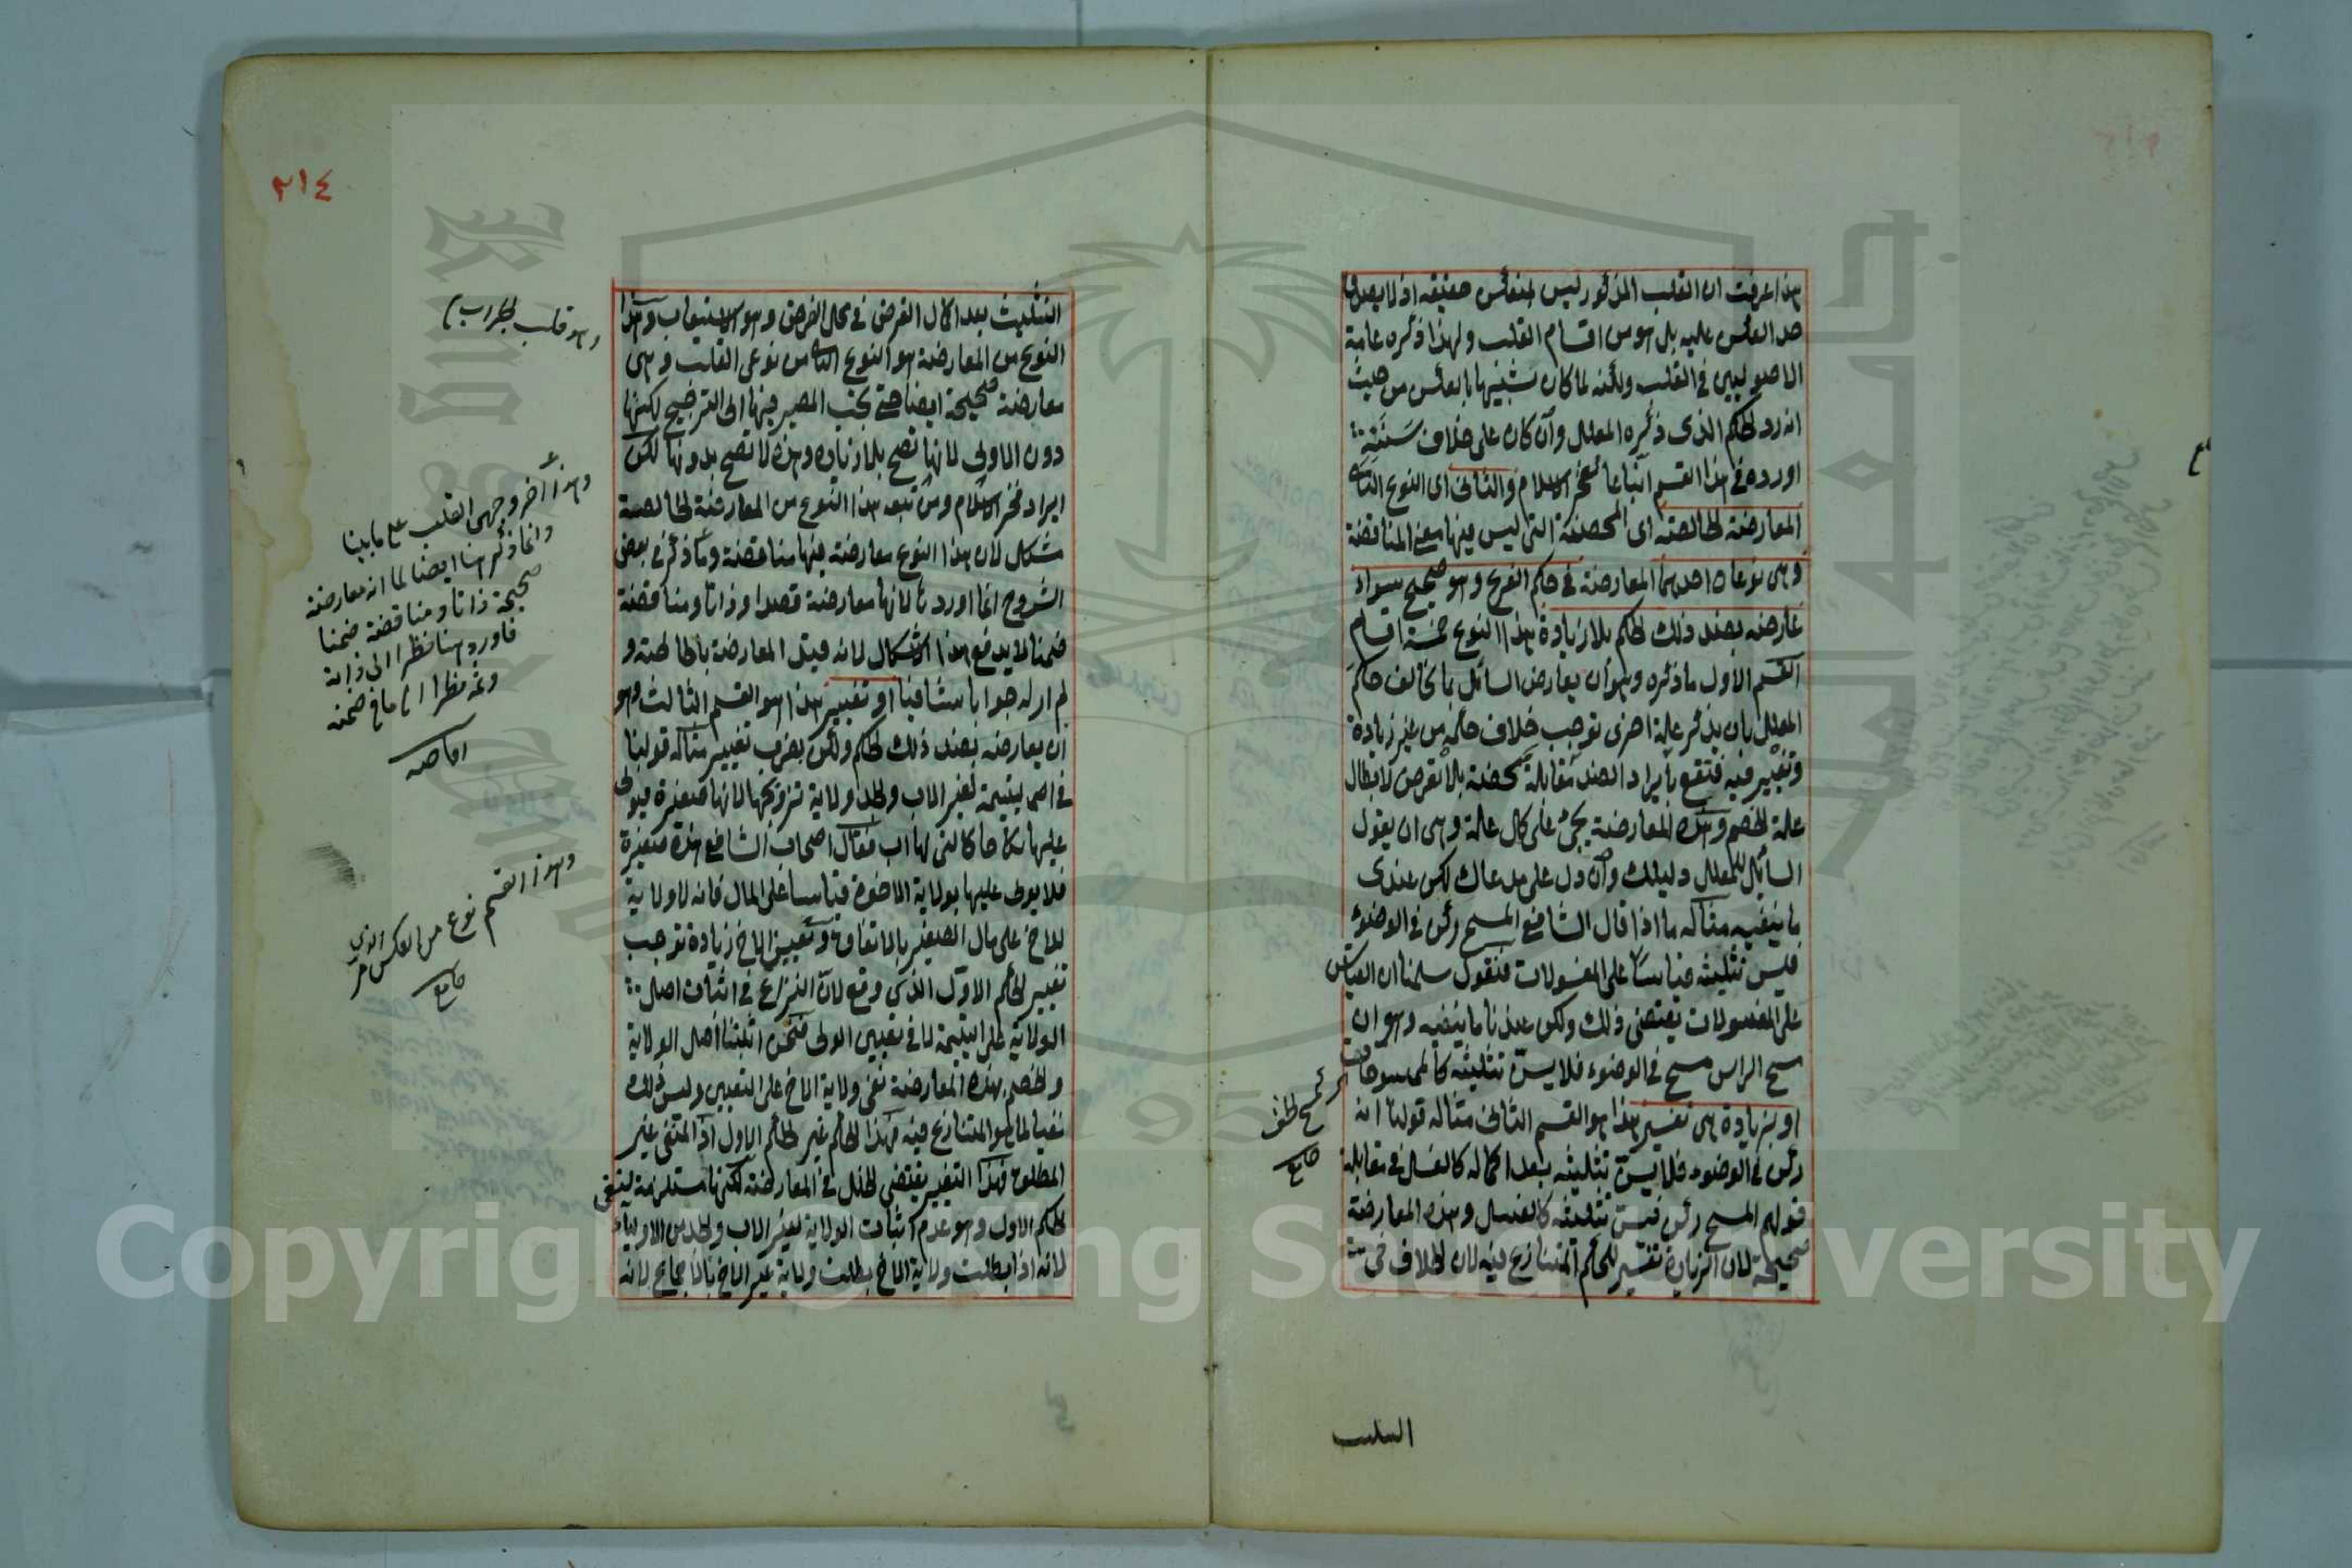 هذا عرفت ان القلب المذكور ليس بعكس حقيقة اذ لا يصدق
حد العكس عليه بل هو من اقسام القلب ولهذا ذكره عامة
الاصوليين في القلب ولكنه لما كان شبيها بالعكس من حيث
انه رد للحكم الذى ذكره المعلل وان كان على خلاف سننه
اورده في هذا القسم اتباعا لفخر الاسلام والثانى اى النوع الثانى
المعارضة الخالصة اى المحضة التى ليس فيها معنى المناقضة
وهى نوعان احدهما المعارضة في حكم الفرع وهو صحيح سواء
عارضه بضد ذلك الحكم بلا زيادة هذا النوع خمسة اقسام
القسم الاول ما ذكره وهو ان يعارض السائل بما يخالف حكم
المعلل بان يذكر علة اخرى توجب خلاف حكمه من غير زيادة
وتغيير فيه فتقع بايراد الضد مقابلة محضة بلا تعرض لابطال
علة الخصم وهذه المعارضة يجئ على كل علة وهى ان يقول
السائل للمعلل دليلك وان دل على مدعاك لكن عندى
ما ينفيه مثاله ما اذا قال الشافعى المسح ركن في الوضوء
فيسن تثليثه قياسا على المغسولات فنقول سلمنا ان القياس
على المغسولات يقتضى ذلك ولكن عندنا ما ينفيه وهو ان
مسح الراس مسح في الوضوء فلا يسن تثليثه كالممسوحات
كمسح الخف
او بزيادة هى تفسير هذا هو القسم الثانى مثاله قولنا انه
ركن في الوضوء فلا يسن تثليثه بعد اكماله كالغسل في مقابلة
قولهم المسح ركن فيسن تثليثه كالغسل وهذه المعارضة
صحيحة لان الزيادة تفسير للحكم المتنازع فيه لان الخلاف في
التثليث
٢١٤
التثليث بعد اكمال الفرض في محل الفرض وهو الاستيعاب وهذا
النوع من المعارضة هو النوع الثانى من نوعى القلب وهى
معارضة صحيحة ايضا حتى يجب المصير فيها الى الترجيح لكنها
دون الاولى لانها تصح بلا زيادة وهذه لا تصح بدونها لكن
ايراد فخر الاسلام ومن تبعه هذا النوع من المعارضة الخالصة
مشكل لان هذا النوع معارضة فيها مناقضة وما ذكر في بعض
الشروح انما اوردنا لانها معارضة قصدا وذاتا ومناقضة
ضمنا لا يدفع هذا الاشكال لانه قيد المعارضة بالخالصة و
لم ار له جوابا شافيا او تغيير هذا هو القسم الثالث وهو
ان يعارضه بضد ذلك الحكم ولكن بضرب تغيير مثاله قولنا
في يتيمة لغير الاب والجد ولاية تزويجها لانها صغيرة فيولى
عليها نكاحا كالتى لها اب فقال اصحاب الشافعى هذه صغيرة
فلا يولى عليها بولاية الاخوة قياسا على المال فانه لا ولاية
للاخ على مال الصغير بالاتفاق وتعيين الاخ زيادة توجب
تغيير الحكم الاول الذى وقع لان النزاع في اثبات اصل
الولاية على اليتيمة لا في تعيين الولى فنحن اثبتنا اصل الولاية
والخصم بهذه المعارضة نفى ولاية الاخ على التعيين وليس ذلك
نفيا لما هو المتنازع فيه فهذا الحكم غير الحكم الاول اذ المنفى غير
المطلوب فهذا التغيير يقتضى الخلل في المعارضة لكنها مستلزمة لنفى
الحكم الاول وهو عدم اثبات الولاية لغير الاب والجد من الاولياء
لانه اذا بطلت ولاية الاخ بطلت ولاية غير الاخ بالاجماع لانه
وهو قلب
وهذا آخر وجهى القلب على ما بينا
وانما ذكر هنا ايضا لما انه معارضة
صحيحة ذاتا ومناقضة ضمنا
فاورد هنا نظرا الى ذاته
وثمه نظرا الى ما في ضمنه
وهذا القسم نوع من العكس الذى